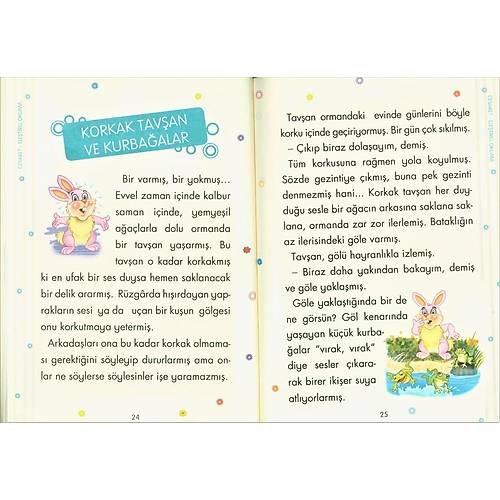 KORKAK TAVŞAN
VE KURBAĞALAR
Bir varmış, bir yokmuş...
Evvel zaman içinde kalbur
saman içinde, yemyeşil
ağaçlarla dolu ormanda
bir tavşan yaşarmış. Bu
tavşan o kadar korkakmış
ki en ufak bir ses duysa hemen saklanacak
bir delik ararmış. Rüzgârda hışırdayan yap-
rakların sesi ya da uçan bir kuşun gölgesi
onu korkutmaya yetermiş.
Arkadaşları ona bu kadar korkak olmama-
sı gerektiğini söyleyip dururlarmış ama on-
lar ne söylerse söylesinler işe yaramazmış.
24
Tavşan ormandaki evinde günlerini böyle
korku içinde geçiriyormuş. Bir gün çok sıkılmış.
– Çıkıp biraz dolaşayım, demiş.
Tüm korkusuna rağmen yola koyulmuş.
Sözde gezintiye çıkmış, buna pek gezinti
denmezmiş hani... Korkak tavşan her duy-
duğu sesle bir ağacın arkasına saklana sakla-
na, ormanda zar zor ilerlemiş. Bataklığın
az ilerisindeki göle varmış.
Tavşan, gölü hayranlıkla izlemiş.
– Biraz daha yakından bakayım, demiş
ve göle yaklaşmış.
Göle yaklaştığında bir de
ne görsün? Göl kenarında
yaşayan küçük kurba-
ğalar “vırak, vırak”
diye sesler çıkara-
rak birer ikişer suya
atlıyorlarmış.
25